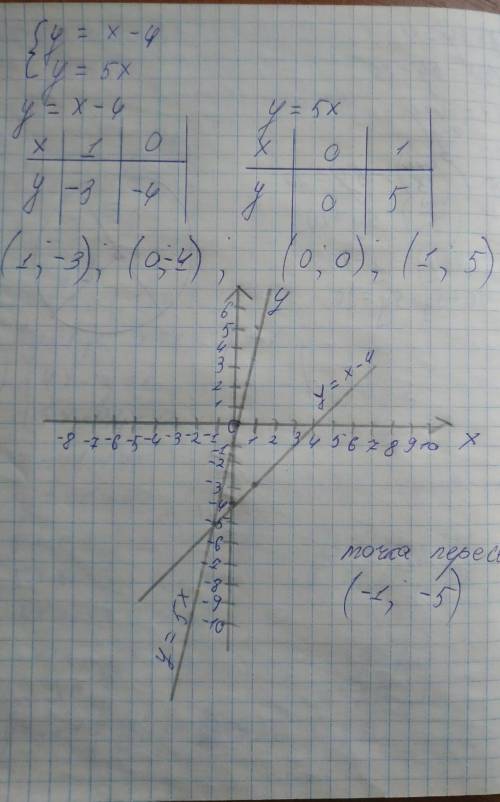 { y = x - 4
y = 5x
y = x - 4 y = 5x
x 1 0 x 0 1
y -3 -4 y 0 5
(1; -3); (0; -4); (0; 0); (1; 5)
y
6
5
4
3
2
1
y = x - 4
-8 -7 -6 -5 -4 -3 -2 -1 0 1 2 3 4 5 6 7 8 9 10 x
-1
-2
-3
-4
-5
-6
-7
-8
-9
-10
y = 5x
точка пересе
(-1; -5)